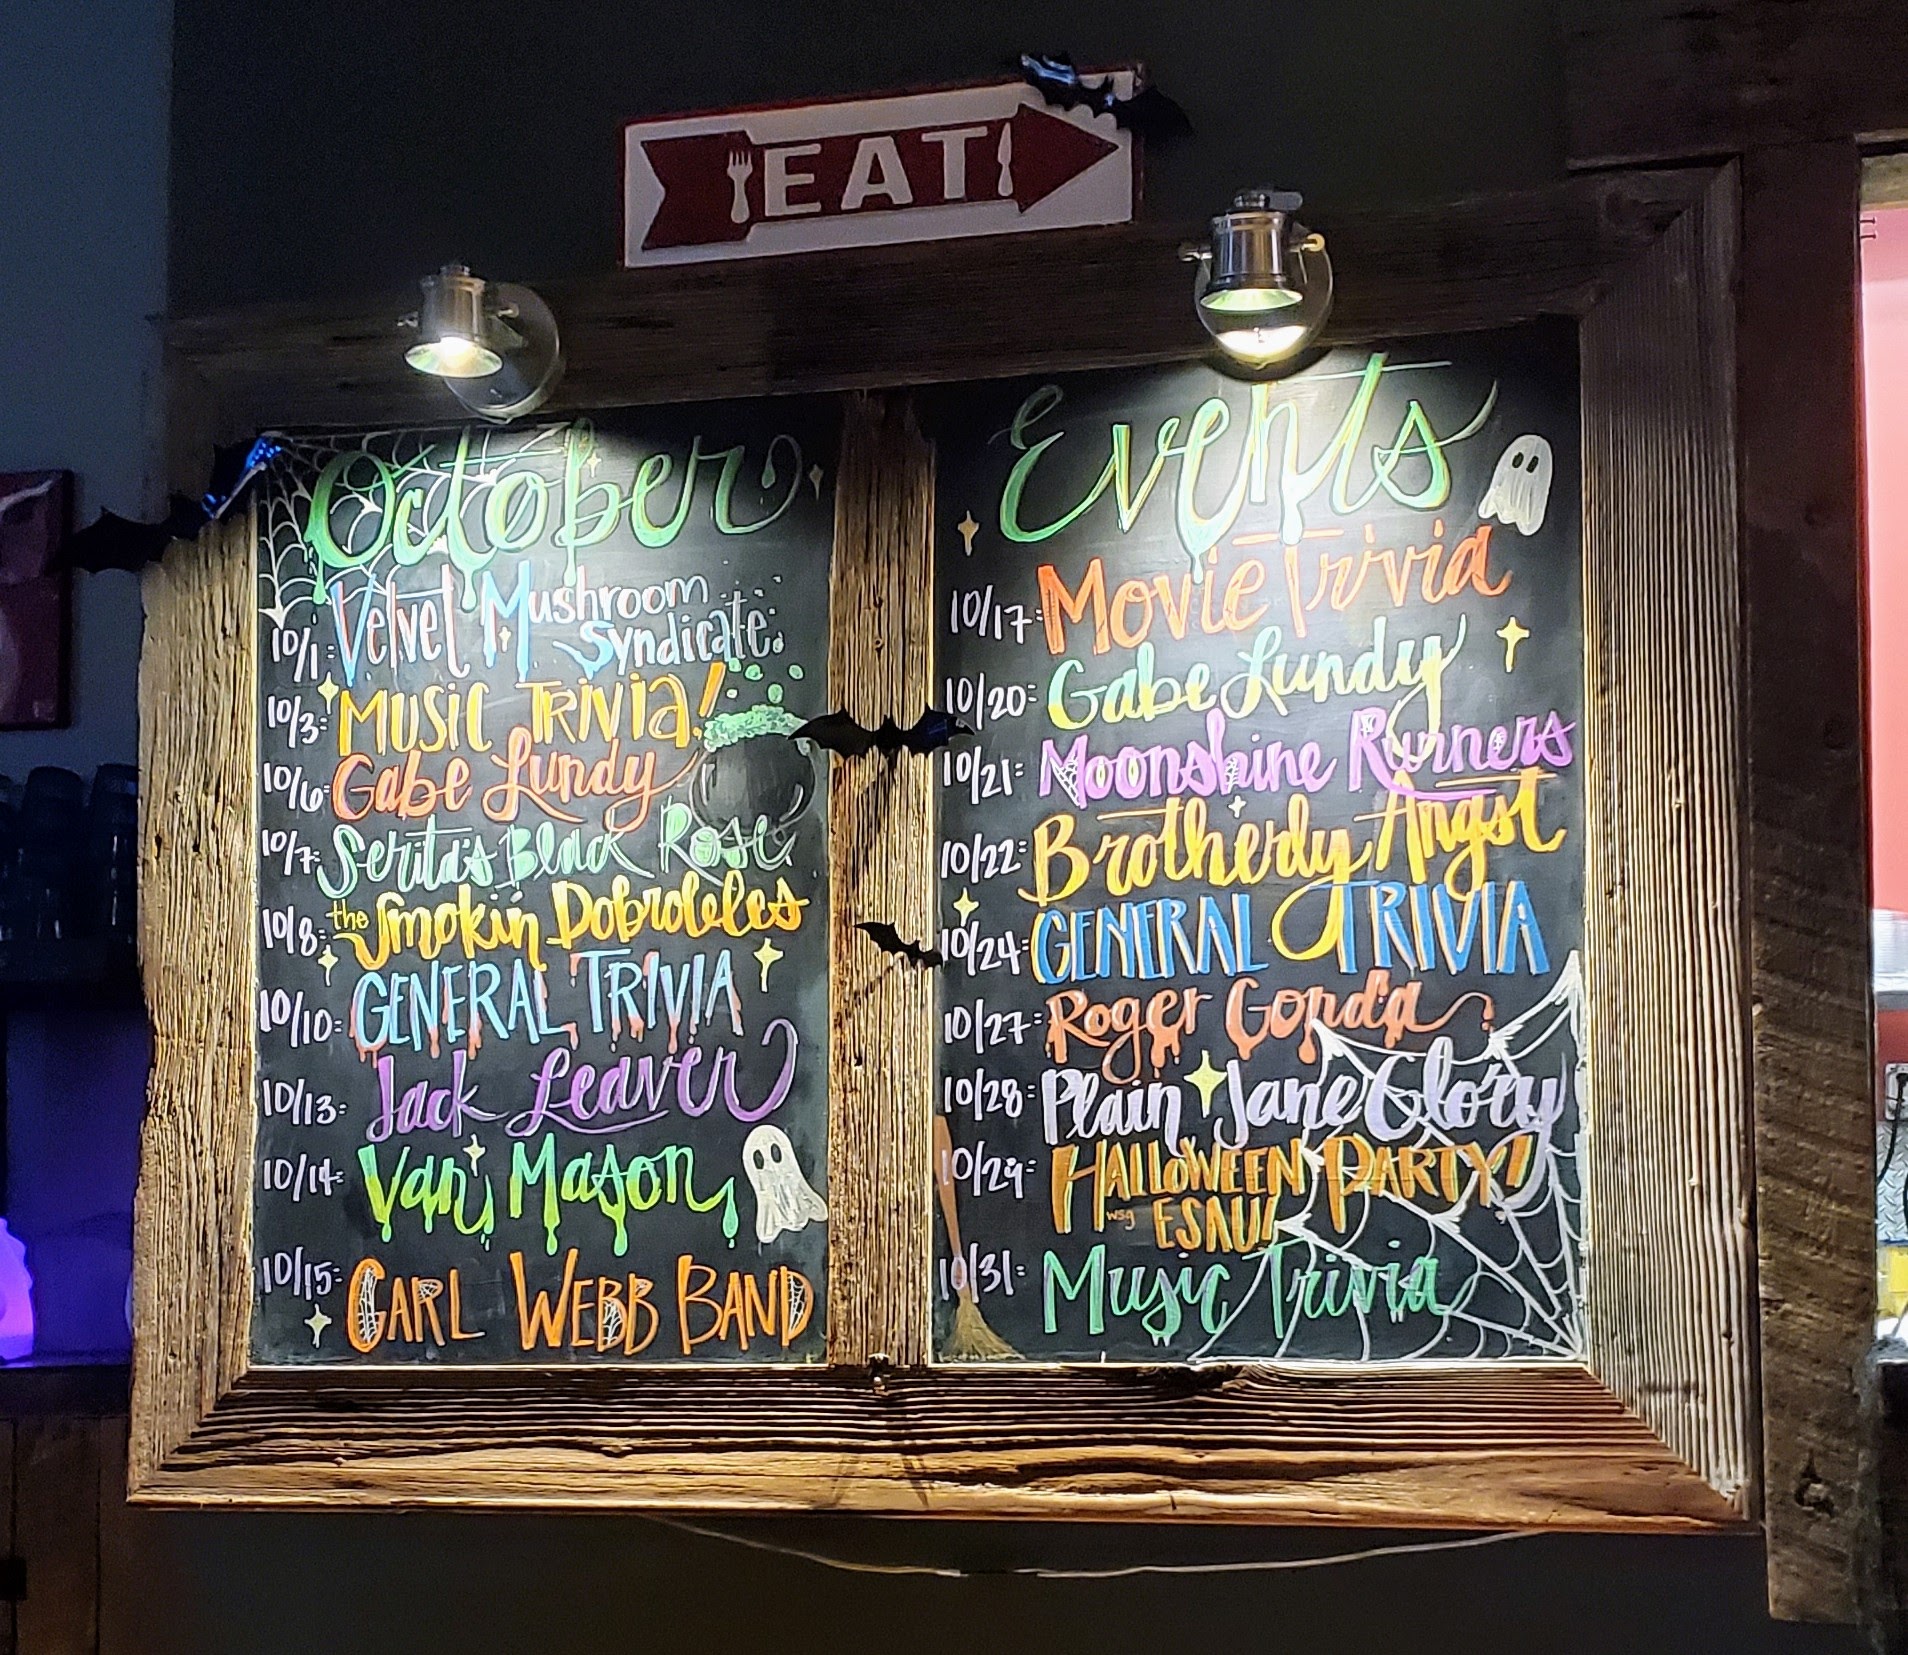 EAT
October
10/1: Velvet Mushroom Syndicate
10/3: MUSIC TRIVIA!
10/6: Gabe Lundy
10/7: Serita's Black Rose
10/8: the Smokin Dobroleles
10/10: GENERAL TRIVIA
10/13: Jack Leaver
10/14: Van Mason
10/15: CARL WEBB BAND
Events
10/17: Movie Trivia
10/20: Gabe Lundy
10/21: Moonshine Runners
10/22: Brotherly Angst
10/24: GENERAL TRIVIA
10/27: Roger Gorda
10/28: Plain Jane Glory
10/29: HALLOWEEN PARTY!
wsg ESAU!
10/31: Music Trivia